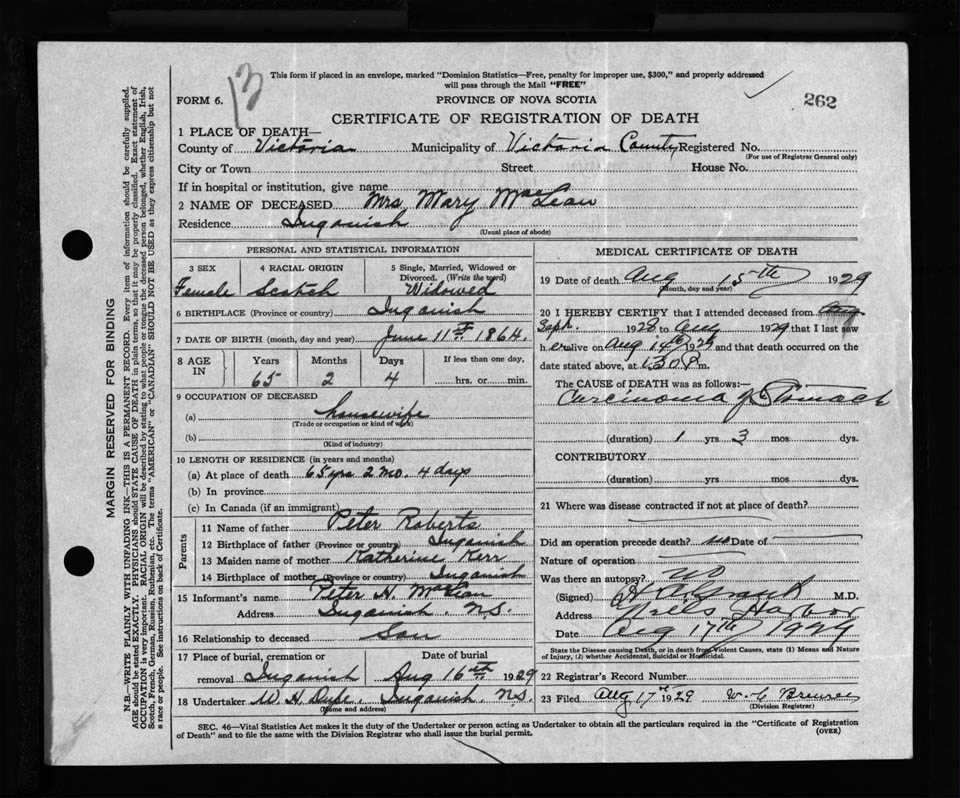 13
This form if placed in an envelope, marked "Dominion Statistics—Free, penalty for improper use, $300," and properly addressed
will pass through the Mail "FREE"
262
FORM 6. PROVINCE OF NOVA SCOTIA
CERTIFICATE OF REGISTRATION OF DEATH
1 PLACE OF DEATH—
County of Victoria Municipality of Victoria County Registered No.
(For use of Registrar General only)
City or Town Street House No.
If in hospital or institution, give name
2 NAME OF DECEASED Mrs. Mary MacLean
Residence Inganish
(Usual place of abode)
PERSONAL AND STATISTICAL INFORMATION
3 SEX 4 RACIAL ORIGIN 5 Single, Married, Widowed or
Divorced. (Write the word)
Female Scotch Widowed
6 BIRTHPLACE (Province or country) Inganish
7 DATE OF BIRTH (month, day and year) June 11th 1864.
8 AGE IN Years Months Days If less than one day,
65 2 4 hrs. or min.
9 OCCUPATION OF DECEASED
(a) housewife
(Trade or occupation or kind of work)
(b)
(Kind of industry)
10 LENGTH OF RESIDENCE (in years and months)
(a) At place of death 65 yrs 2 mo. 4 days
(b) In province
(c) In Canada (if an immigrant)
Parents
11 Name of father Peter Roberts
12 Birthplace of father (Province or country) Inganish
13 Maiden name of mother Katherine Kerr
14 Birthplace of mother (Province or country) Inganish
15 Informant's name Peter H. MacLean
Address Inganish, N.S.
16 Relationship to deceased Son
17 Place of burial, cremation or Date of burial
removal Inganish Aug 16th 1929
18 Undertaker W. H. Inganish N.S.
(Name and address)
MEDICAL CERTIFICATE OF DEATH
19 Date of death Aug 15th 1929
(Month, day and year)
20 I HEREBY CERTIFY that I attended deceased from Aug
Sept. 1928 to Aug 1929 that I last saw
her alive on Aug 14th 1929 and that death occurred on the
date stated above, at 1:30 P m.
The CAUSE OF DEATH was as follows:—
Carcinoma of Stomach
(duration) 1 yrs 3 mos dys.
CONTRIBUTORY
(duration) yrs. mos. dys.
21 Where was disease contracted if not at place of death?
Did an operation precede death? no Date of
Nature of operation
Was there an autopsy? no
(Signed) M.D.
Address Neils Harbor
Date Aug 17th 1929
State the Disease causing Death, or in death from Violent Causes, state (1) Means and Nature
of Injury, (2) whether Accidental, Suicidal or Homicidal.
22 Registrar's Record Number
23 Filed Aug 17th 1929 W. C. Brewer
(Division Registrar)
SEC. 46—Vital Statistics Act makes it the duty of the Undertaker or person acting as Undertaker to obtain all the particulars required in the "Certificate of Registration
of Death" and to file the same with the Division Registrar who shall issue the burial permit. (OVER)
MARGIN RESERVED FOR BINDING
N.B.—WRITE PLAINLY WITH UNFADING INK—THIS IS A PERMANENT RECORD. Every item of information should be carefully supplied.
AGE should be stated EXACTLY. PHYSICIANS should STATE CAUSE OF DEATH in plain terms, so that it may be properly classified. Exact statement of
OCCUPATION is very important. RACIAL ORIGIN will be described by stating to what people or tongue the deceased person belonged, whether English, Irish,
Scotch, French, German, Russian, Ruthenian, etc. The terms "AMERICAN" or "CANADIAN" SHOULD NOT BE USED as they express citizenship but not
a race or people. See instructions on back of Certificate.